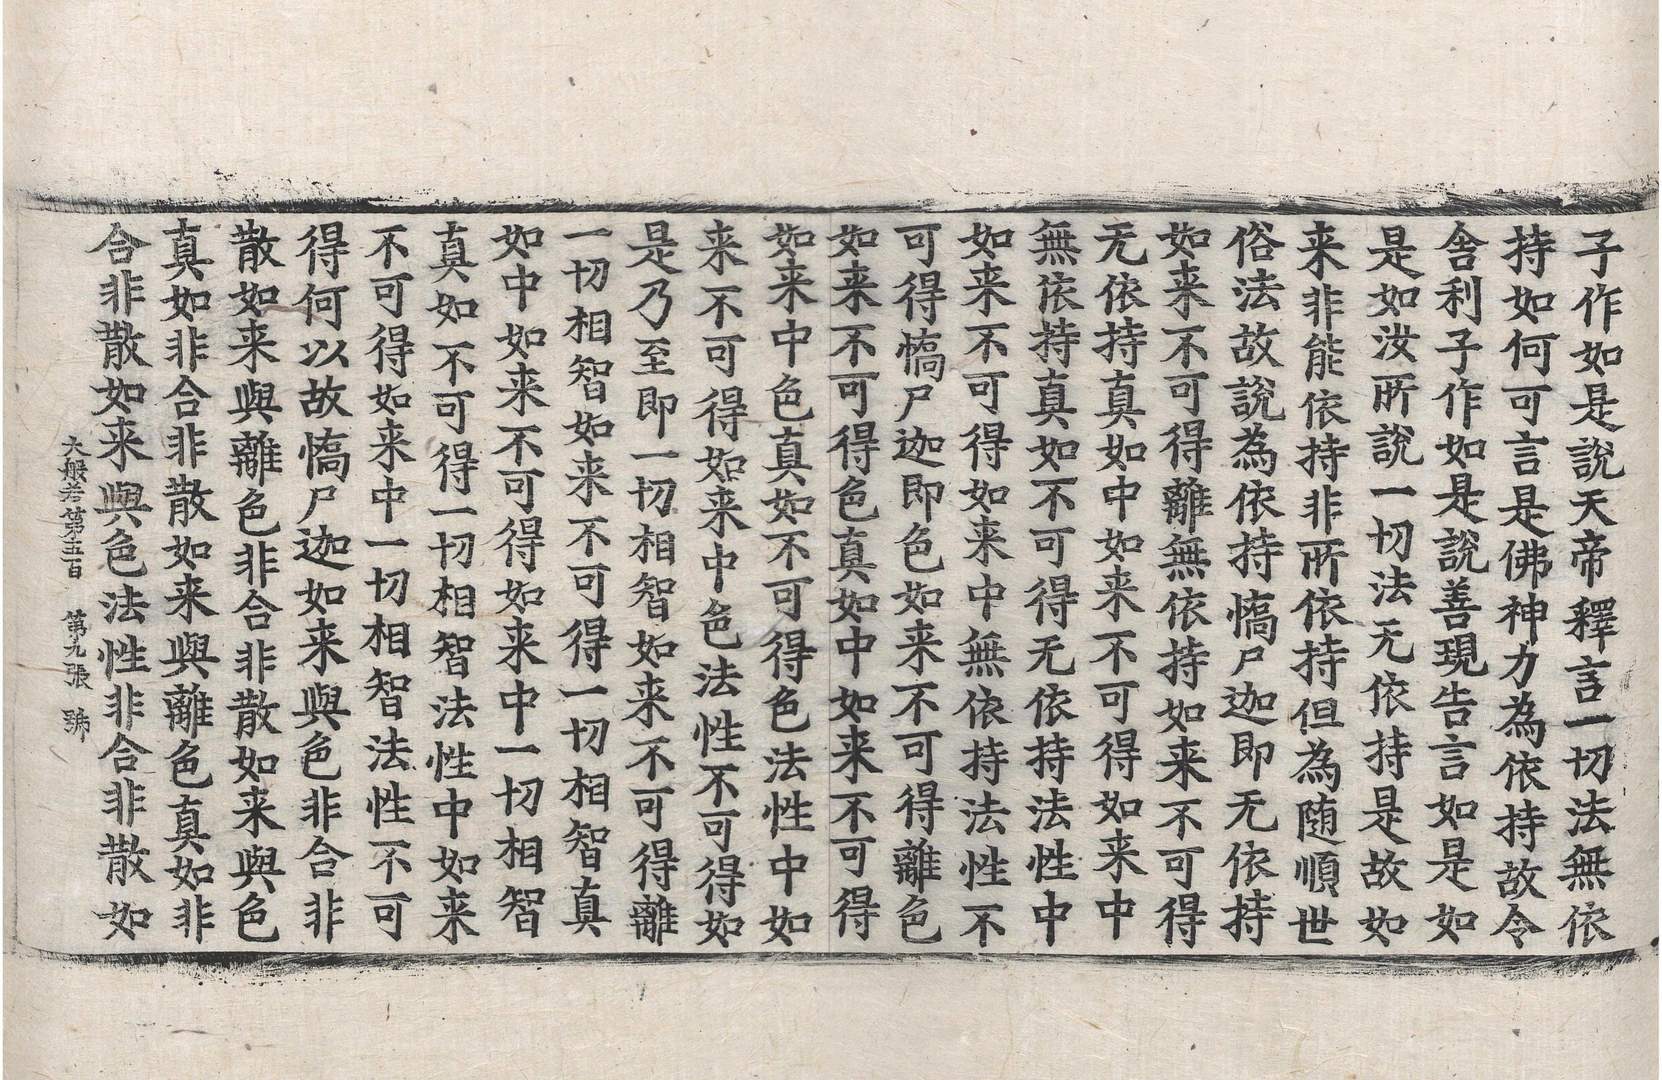 子作如是說天帝釋言一切法無依
持如何可言是佛神力為依持故令
舎利子作如是說善現告言如是如
是如汝所說一切法无依持是故如
来非能依持非所依持但為随順世
俗法故說為依持憍尸迦即无依持
如来不可得離無依持如来不可得
无依持真如中如来不可得如来中
無依持真如不可得无依持法性中
如来不可得如来中無依持法性不
可得憍尸迦即色如来不可得離色
如来不可得色真如中如来不可得
如来中色真如不可得色法性中如
来不可得如来中色法性不可得如
是乃至即一切相智如来不可得離
一切相智如来不可得一切相智真
如中如来不可得如来中一切相智
真如不可得一切相智法性中如来
不可得如来中一切相智法性不可
得何以故憍尸迦如来與色非合非
散如来與離色非合非散如来與色
真如非合非散如来與離色真如非
合非散如来與色法性非合非散如
大般若第五百　第九張　號